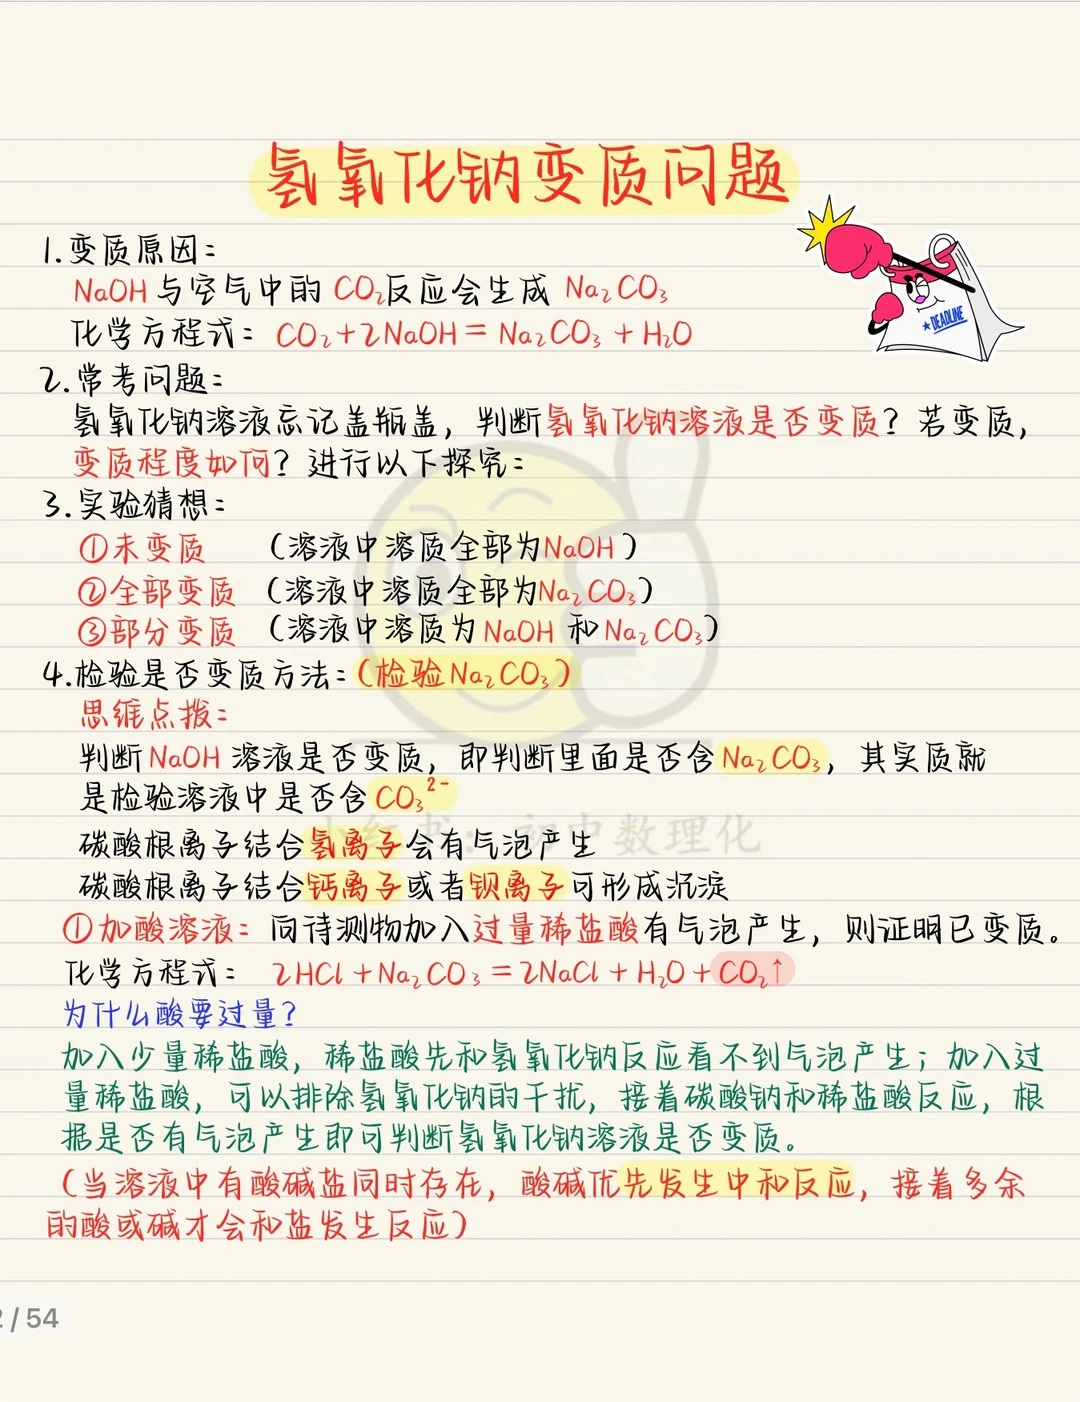 氢氧化钠变质问题
1.变质原因:
NaOH与空气中的CO₂反应会生成 Na₂CO₃
化学方程式: CO₂+2NaOH=Na₂CO₃+H₂O
DEADLINE
2.常考问题:
氢氧化钠溶液忘记盖瓶盖，判断氢氧化钠溶液是否变质？若变质，
变质程度如何？进行以下探究:
3.实验猜想:
①未变质 （溶液中溶质全部为NaOH）
②全部变质 （溶液中溶质全部为Na₂CO₃）
③部分变质 （溶液中溶质为NaOH和Na₂CO₃）
4.检验是否变质方法:（检验Na₂CO₃）
思维点拨:
判断NaOH溶液是否变质，即判断里面是否含Na₂CO₃，其实质就
是检验溶液中是否含CO₃²⁻
小红书：初中数理化
碳酸根离子结合氢离子会有气泡产生
碳酸根离子结合钙离子或者钡离子可形成沉淀
①加酸溶液: 向待测物加入过量稀盐酸有气泡产生，则证明已变质。
化学方程式: 2HCl+Na₂CO₃=2NaCl+H₂O+CO₂↑
为什么酸要过量？
加入少量稀盐酸，稀盐酸先和氢氧化钠反应看不到气泡产生；加入过
量稀盐酸，可以排除氢氧化钠的干扰，接着碳酸钠和稀盐酸反应，根
据是否有气泡产生即可判断氢氧化钠溶液是否变质。
（当溶液中有酸碱盐同时存在，酸碱优先发生中和反应，接着多余
的酸或碱才会和盐发生反应）
2/54